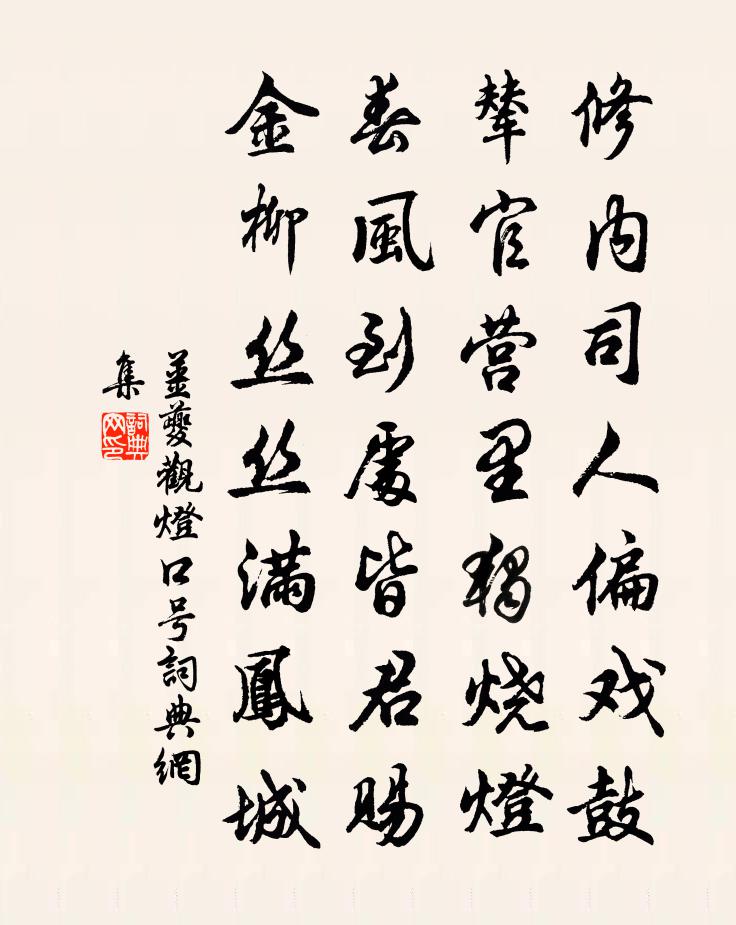 修内司人偏戏鼓
輦官营里獨烧燈
春風到處皆君賜
金柳丝丝滿鳳城
薑夔觀燈口号詞典網
集
詞典网印